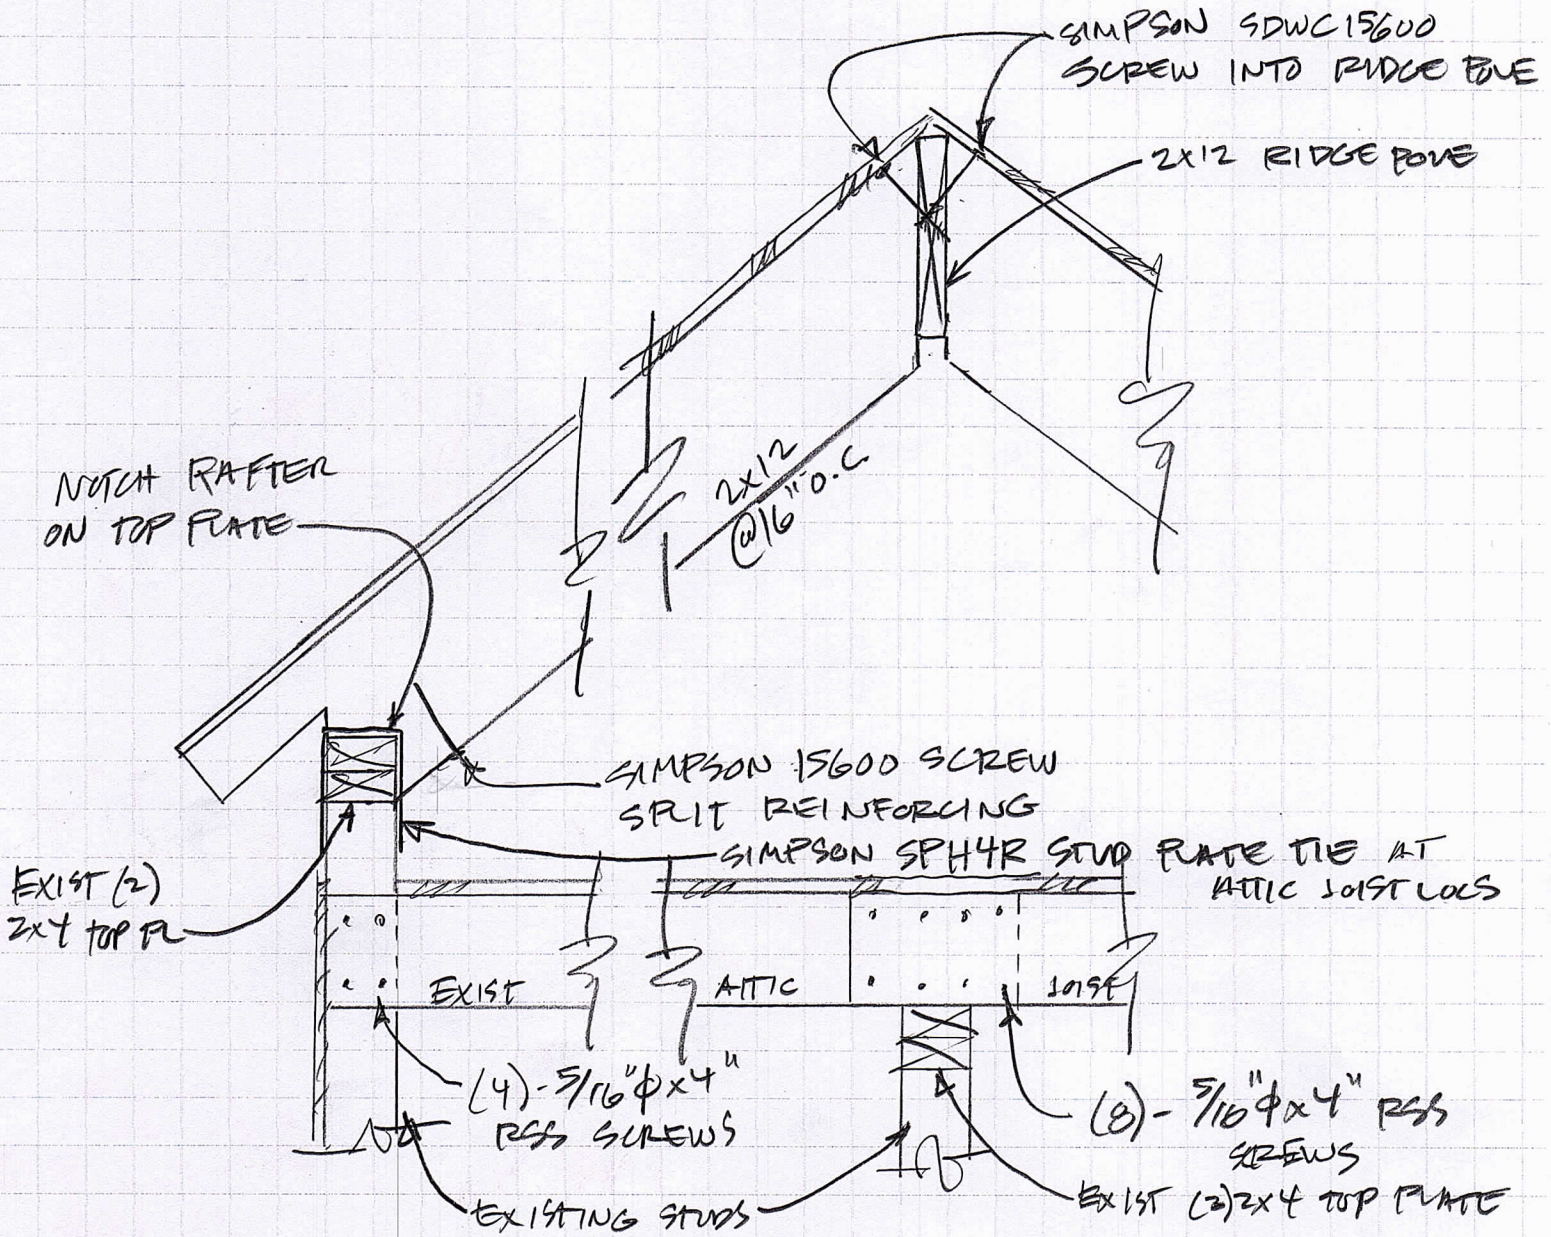 SIMPSON SDWC15600
SCREW INTO RIDGE POLE
2x12 RIDGE POLE
2x12
@16" O.C.
NOTCH RAFTER
ON TOP PLATE
SIMPSON 15600 SCREW
SPLIT REINFORCING
SIMPSON SPH4R STUD PLATE TIE AT
ATTIC JOIST LOCS
EXIST (2)
2x4 TOP PL
EXIST
ATTIC
JOIST
(4)-5/16"ϕx4"
RSS SCREWS
(8)-5/16"ϕx4" RSS
SCREWS
EXISTING STUDS
EXIST (2)2x4 TOP PLATE